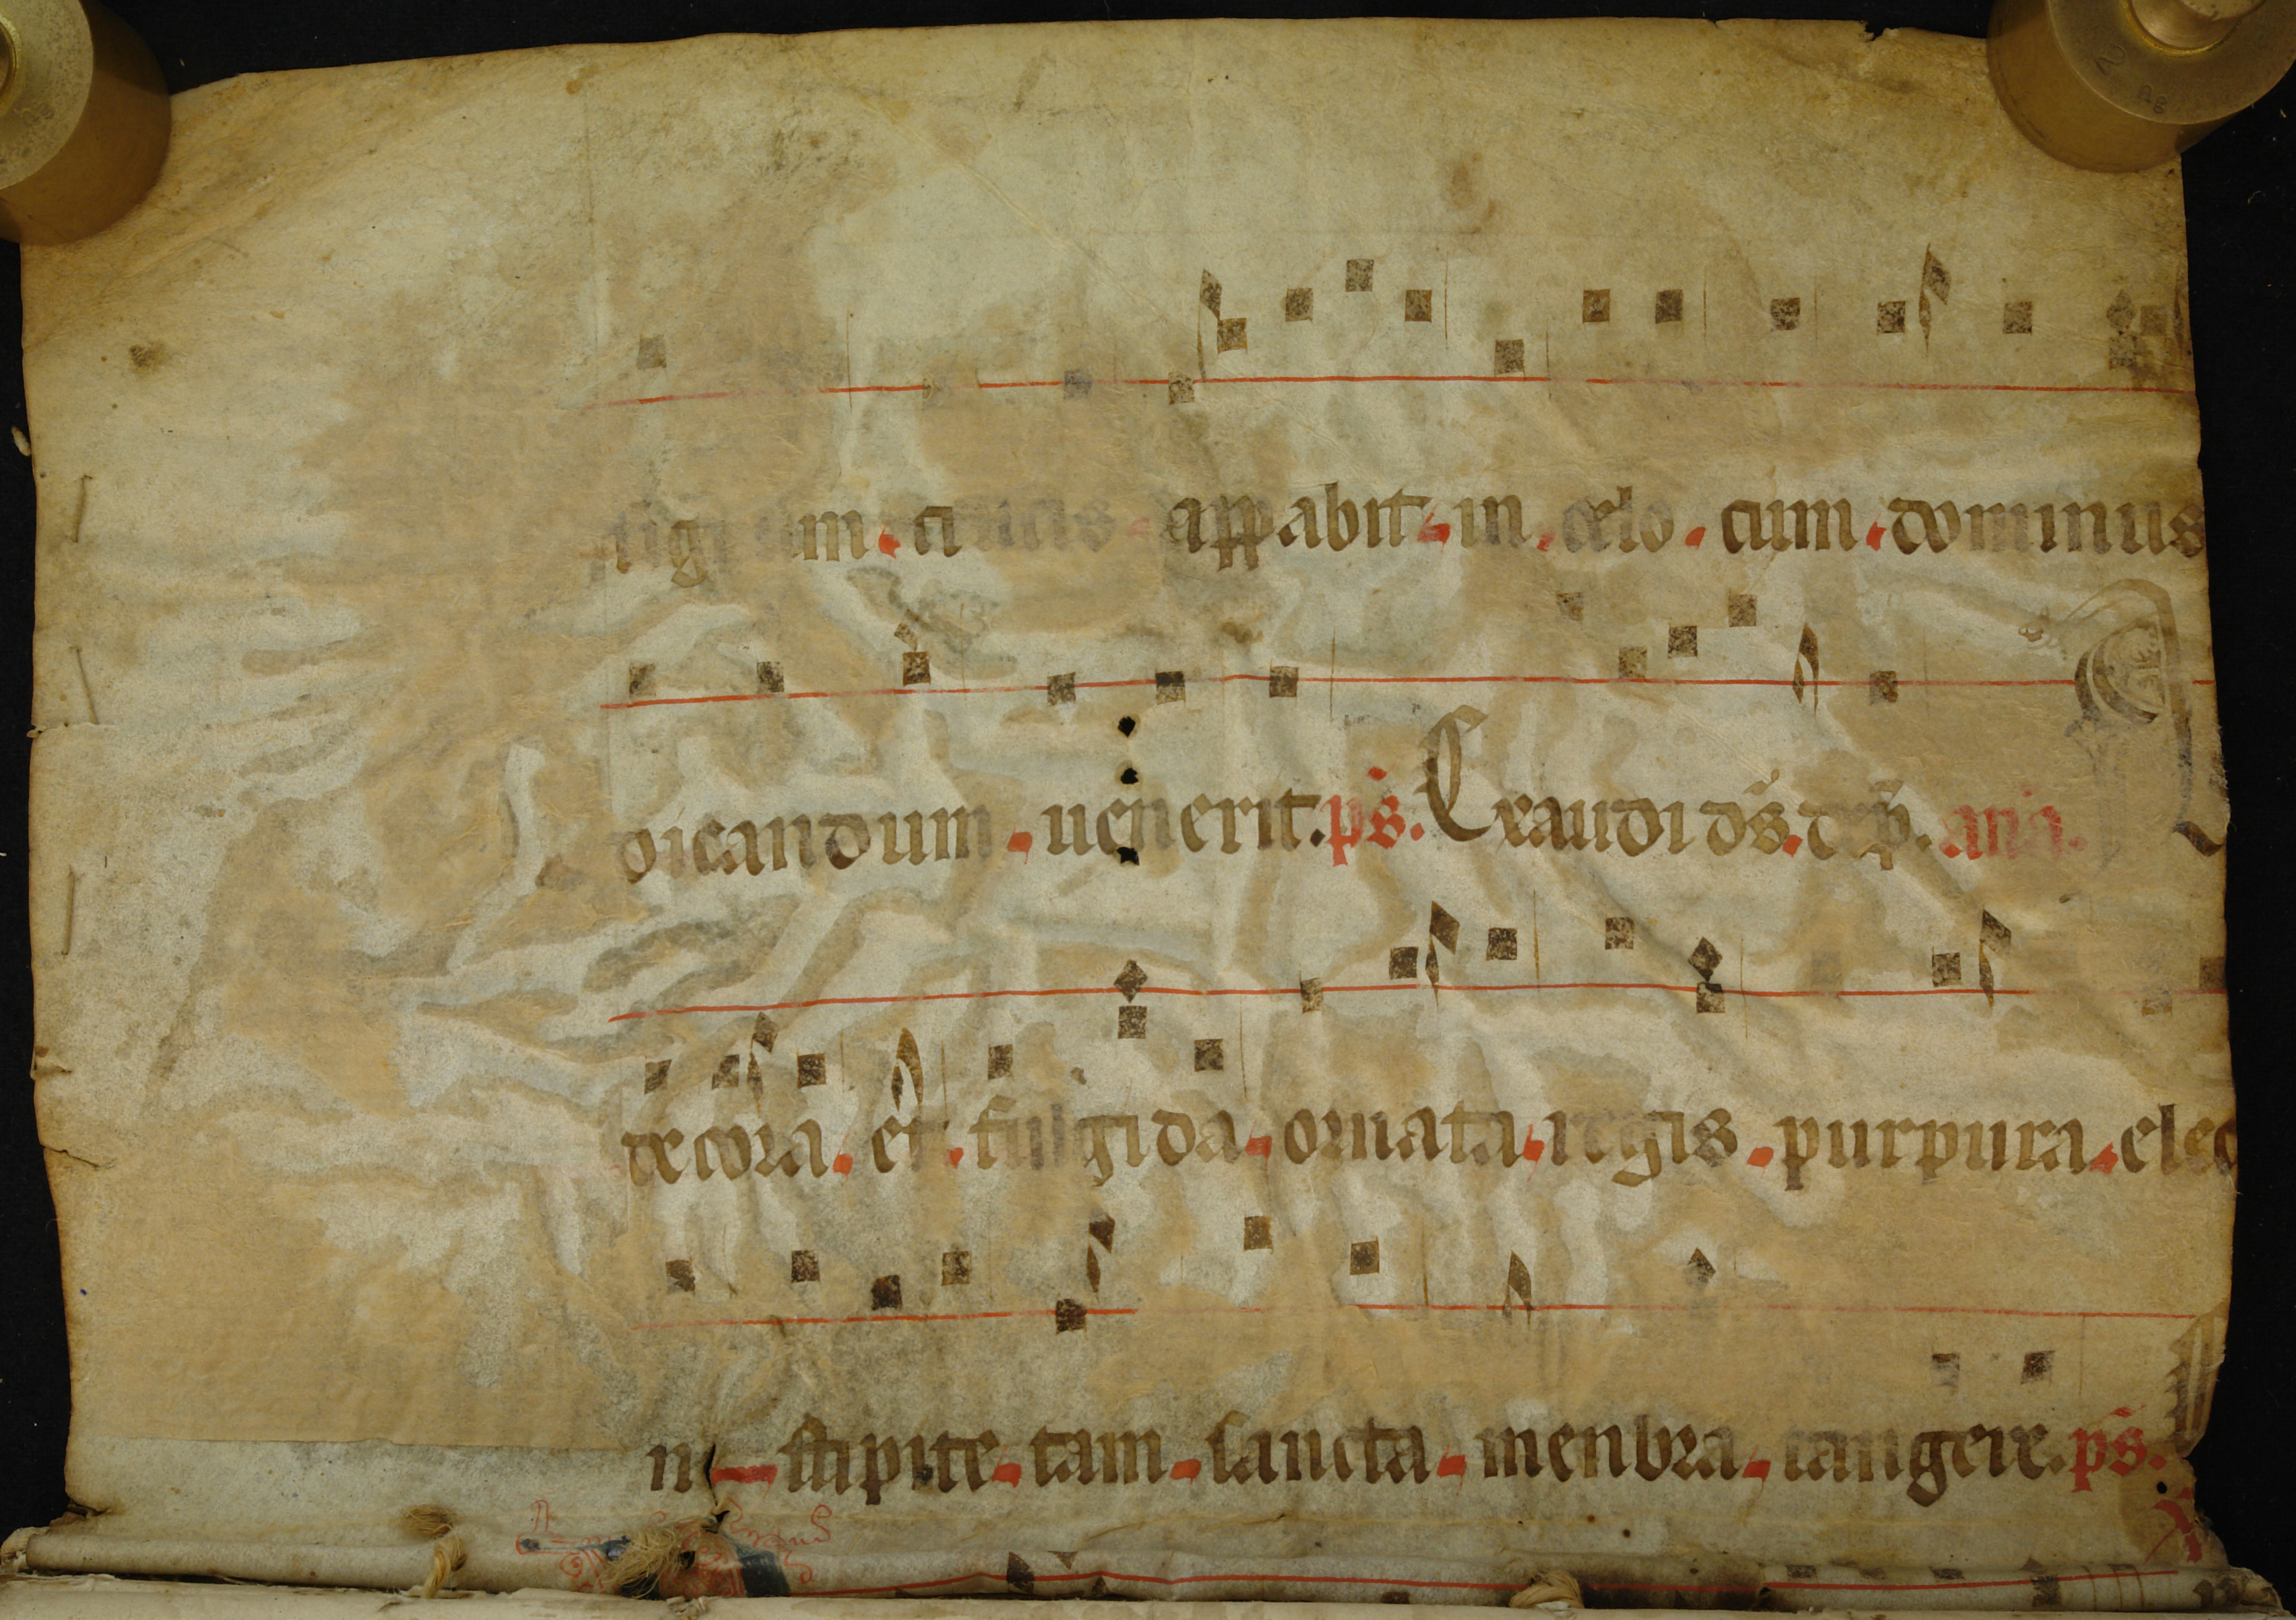 signum crucis apparabit in celo cum dominus
dicandum uenerit. ps. Exaudi ds. dep. ana. A
decora et fulgida ornata regis purpura elec
n stipite tam sancta menbra tangere. ps.